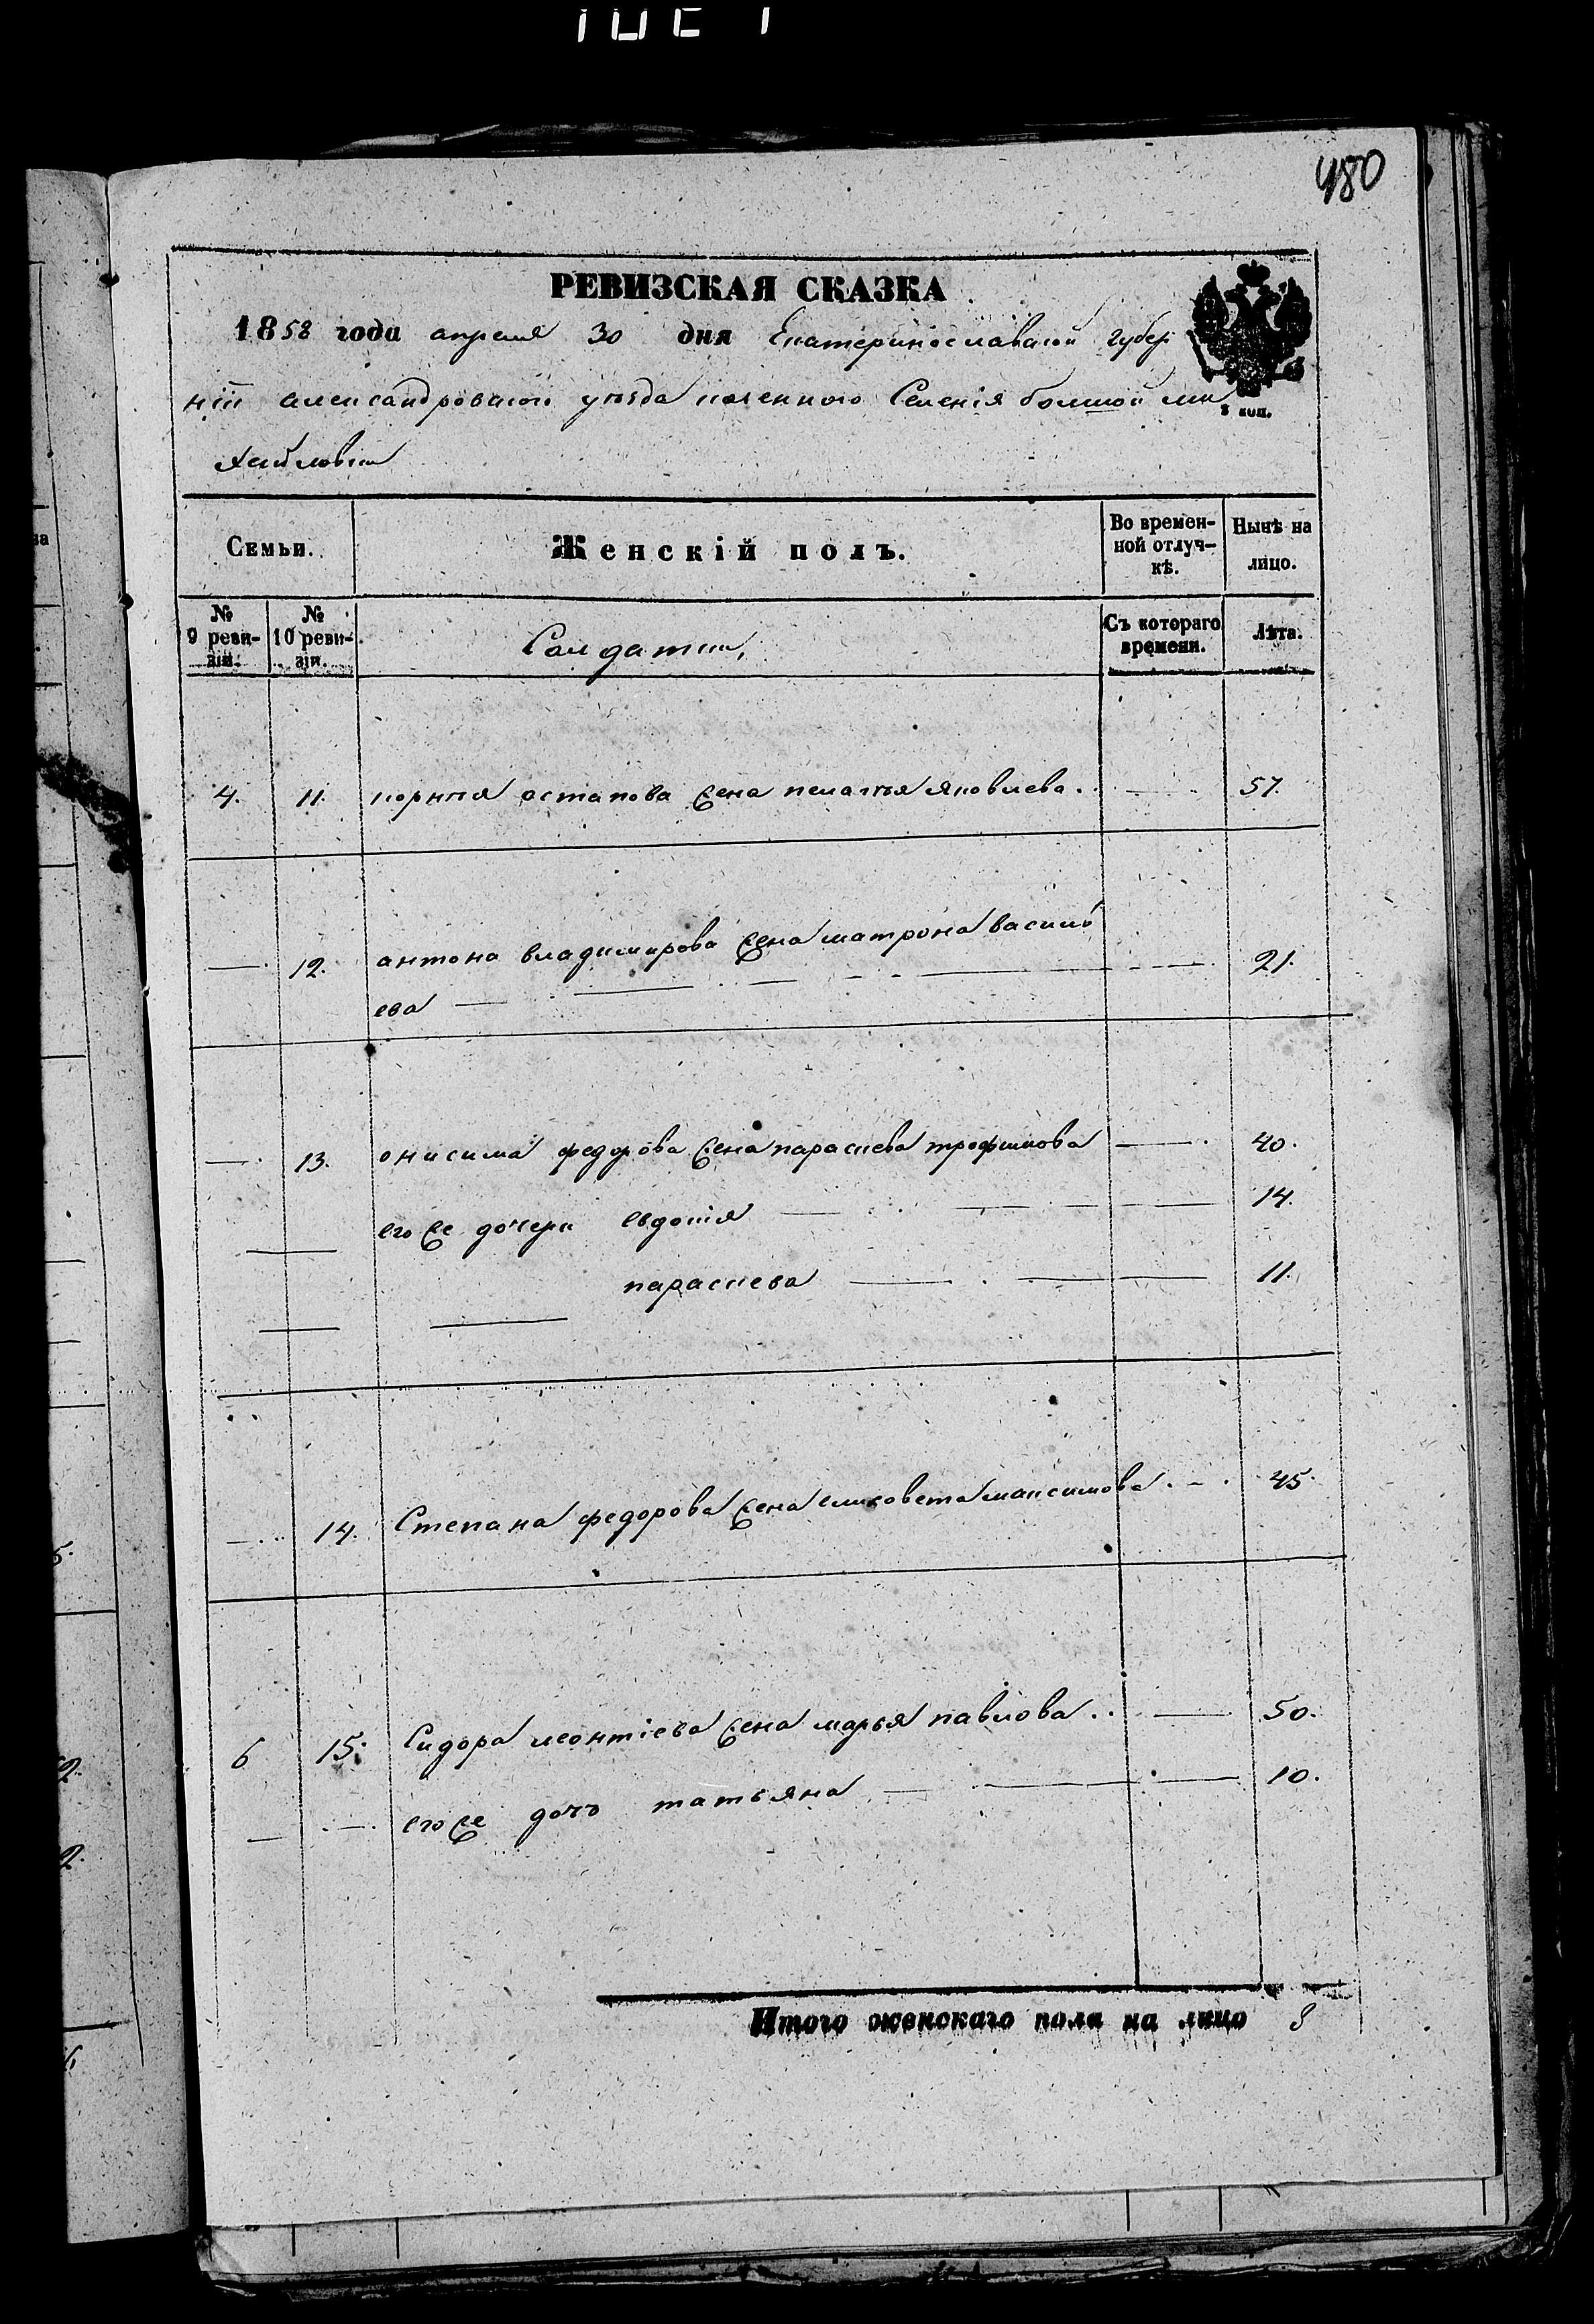 480
РЕВИЗСКАЯ СКАЗКА
1858 года апреля 30 дня Екатеринославской губер
нiи александровской уезда казенного Селенiя большой ми
хайловки
8 коп.
Семьи. Женскiй полъ. Во времен-ной отлуч-кѣ. Нынѣ на лицо.
№ 9 реви-зiи. № 10 реви-зiи. Солдатки, Съ котораго времени. Лѣта.
4. 11. корнѣя остапова жена пелагея яковлева. 57.
12. антона владимирова жена матрона василь 21.
ева
13. онисима федорова жена параскева трофимова 40.
его же дочери евдокiя 14.
параскева 11.
14. Степана федорова жена елисовета максимова 45.
6 15. Сидора леонтiева жена марья павлова 50.
его же дочь татьяна 10.
Итого женскаго пола на лицо 8